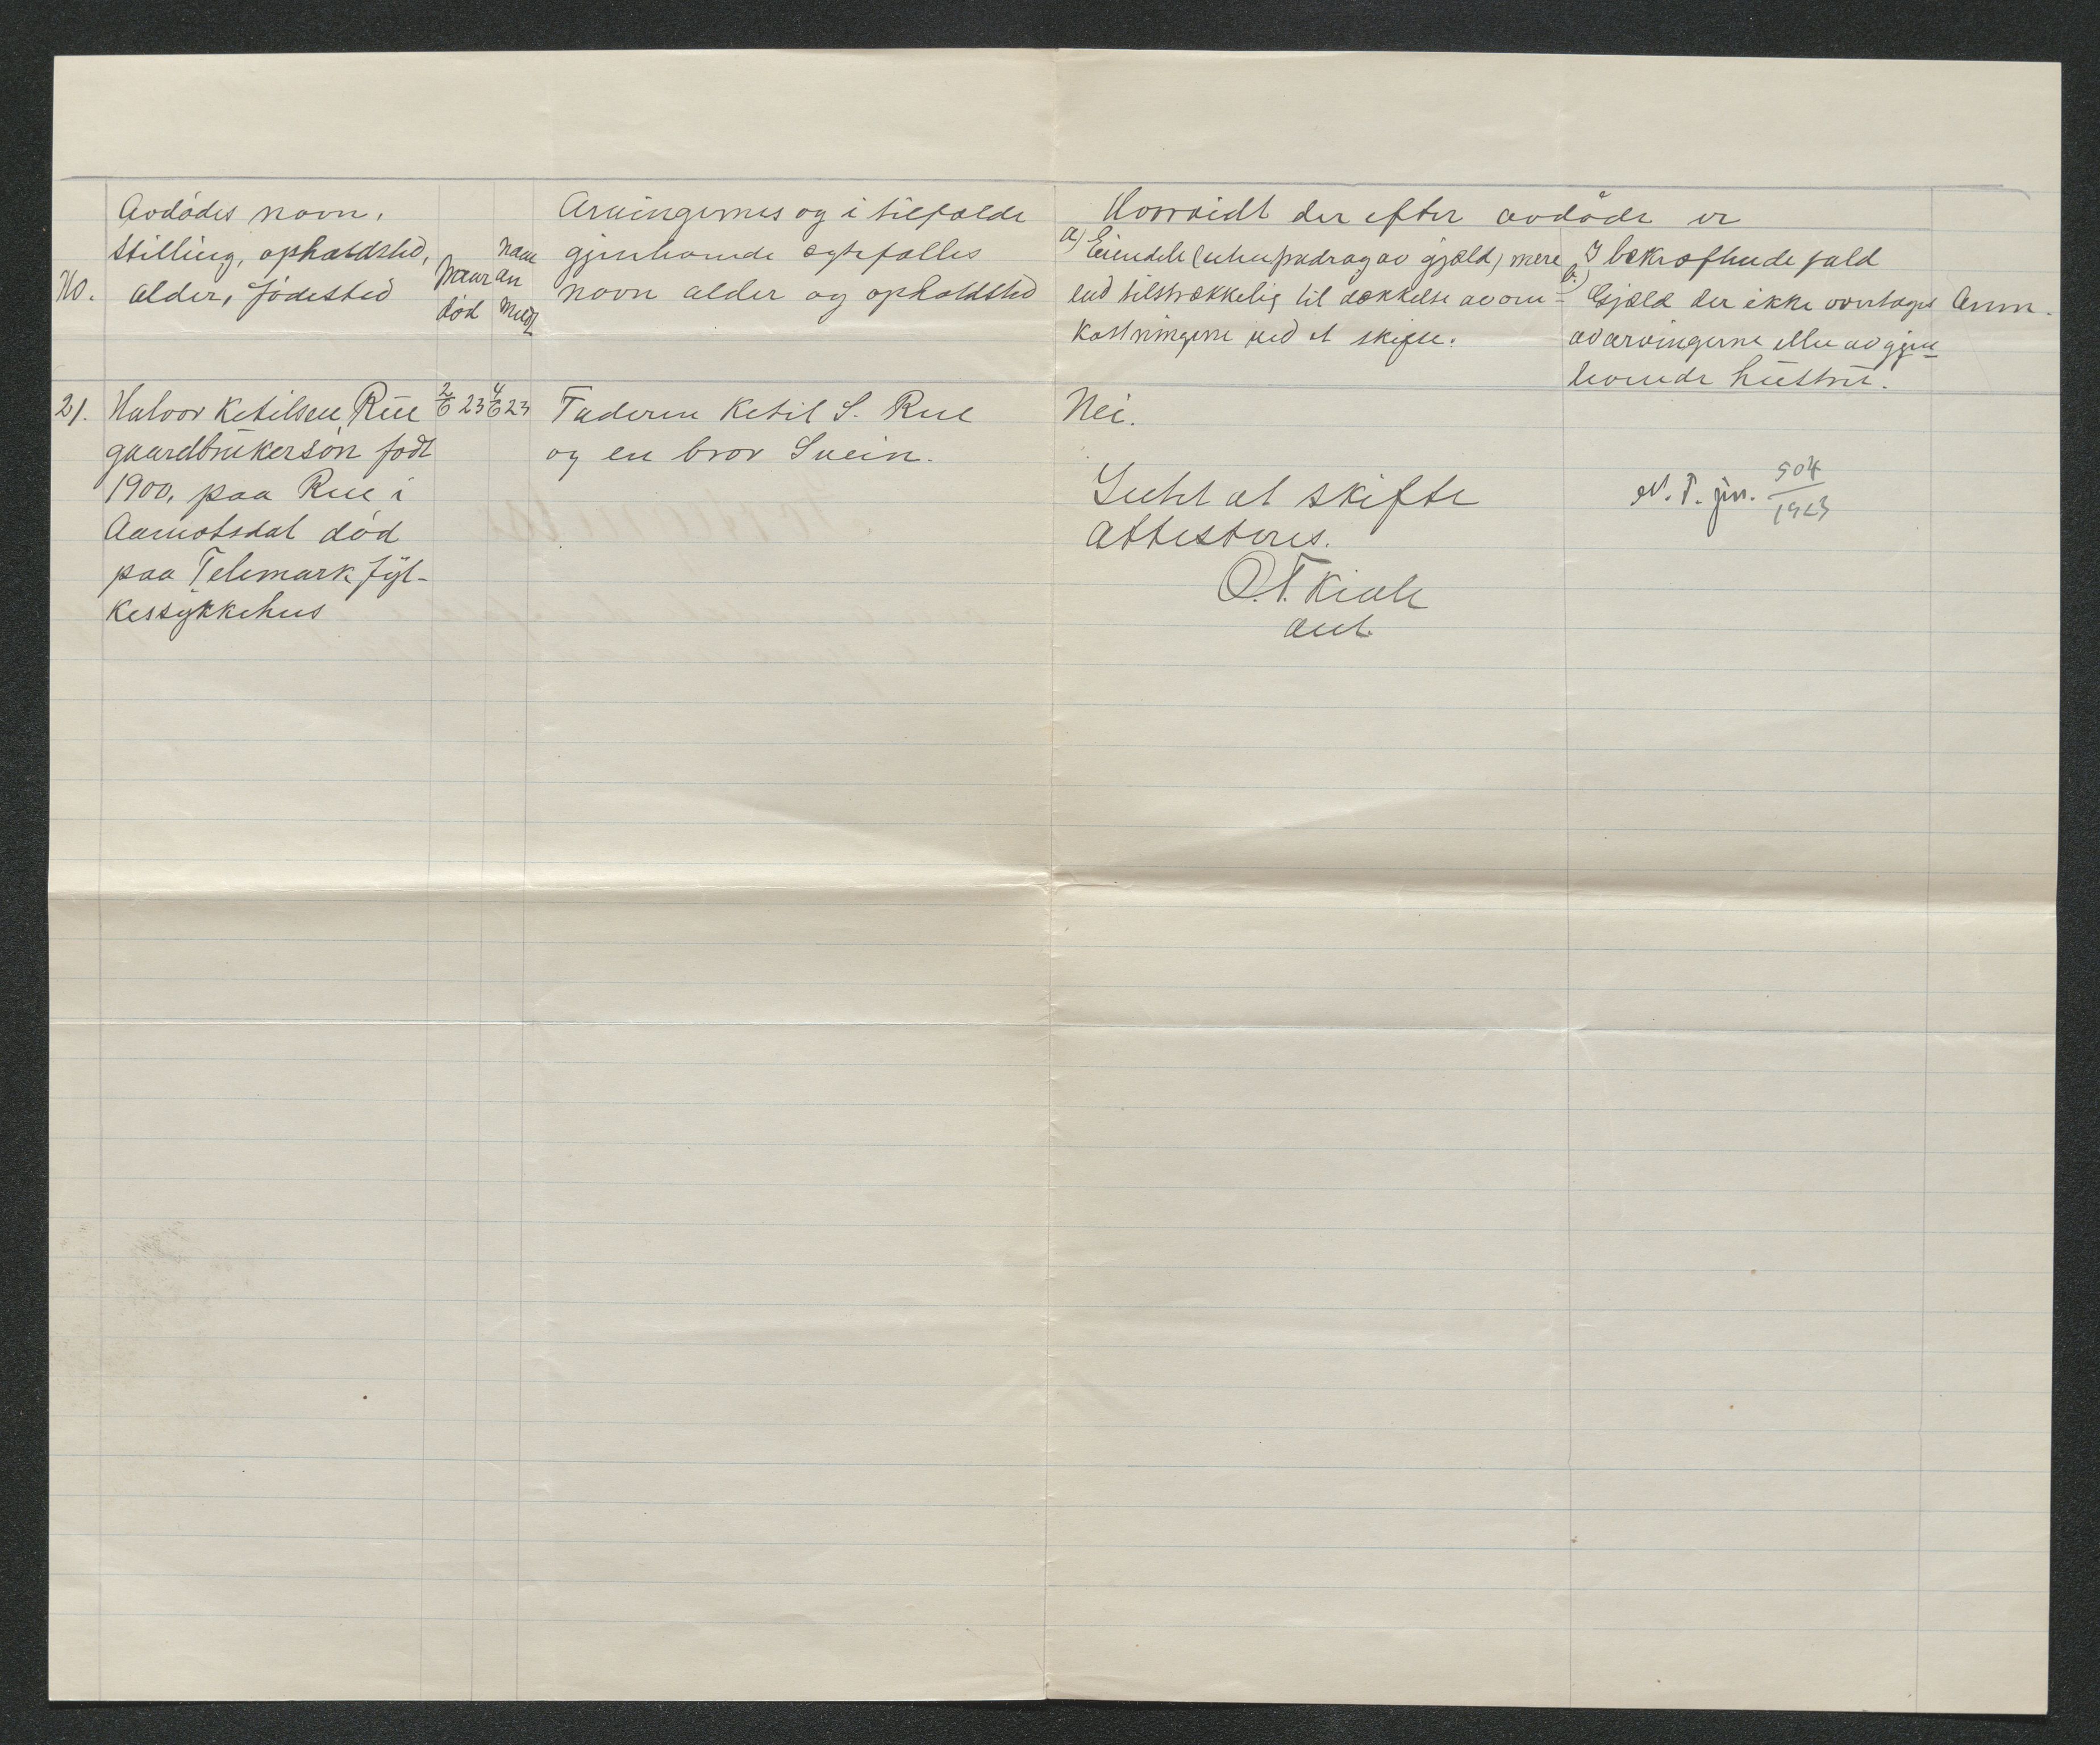 No.
Avdödes navn,
stilling, opholdsted,
alder, födested
Naar
död
naar
an
meldt
Arvingernes og i tilfælde
gjenlevende ægtefælles
navn alder og opholdsted
Hvorvidt der efter avdöde er
a) Eiendele (uten fradrag av gjæld) mere
end tilstrækkelig til dækkelse av om-
kostningerne ved et skifte.
I bekræftende fald
b) Gjæld der ikke overtages
av arvingerne eller av gjen-
levende hustru.
Anm.
21. Halvor Ketilsen Rue
gaardbrukersön födt
1900, paa Rue i
Aamotsdal död
paa Telemark fyl-
kessykkehus
2/6 23
4/6 23
Faderen Ketil S. Rue
og en bror Svein.
Nei.
Intet at skifte
attesteres.
O. T. Kivle
N. T. jur. 504/1923